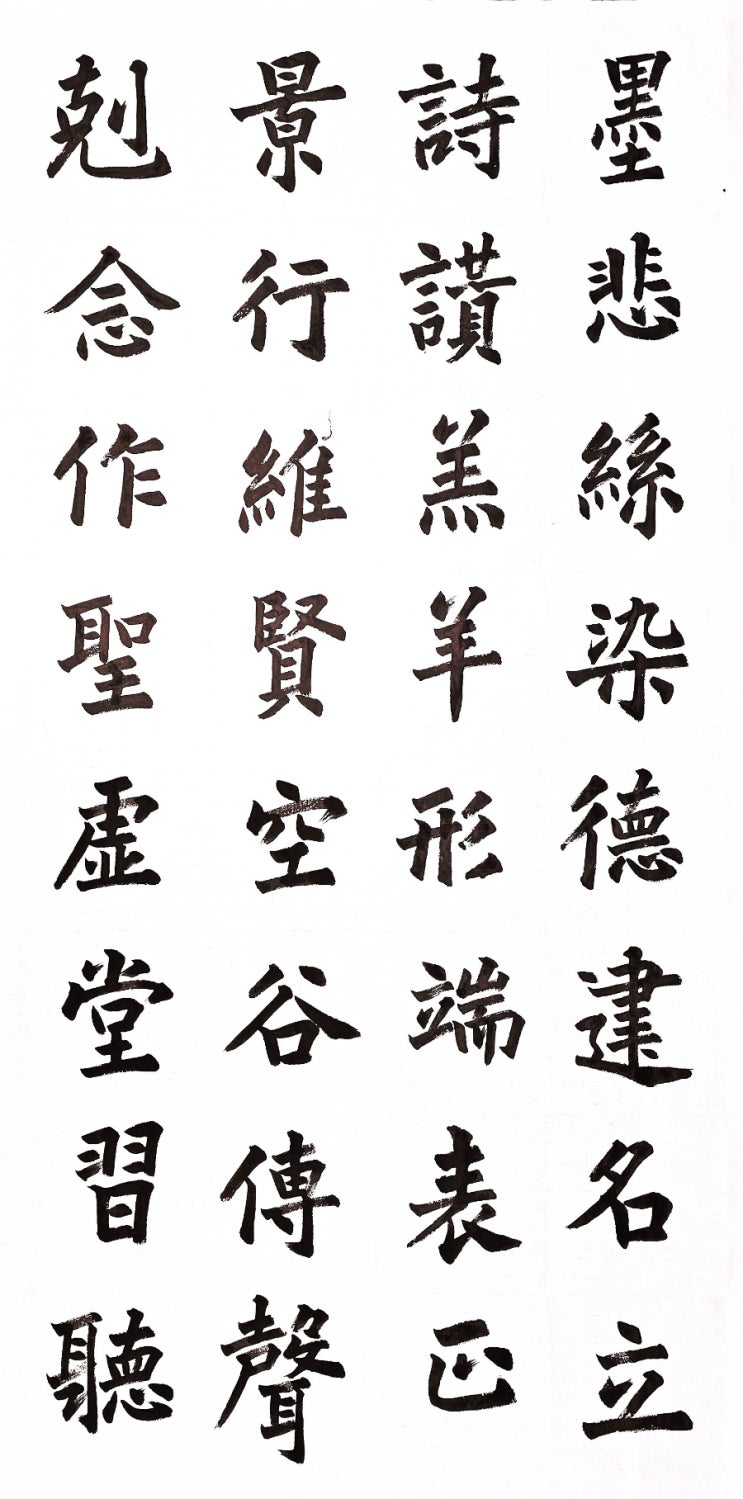 墨悲絲染德建名立
詩讃羔羊形端表正
景行維賢空谷傳聲
剋念作聖虛堂習聽